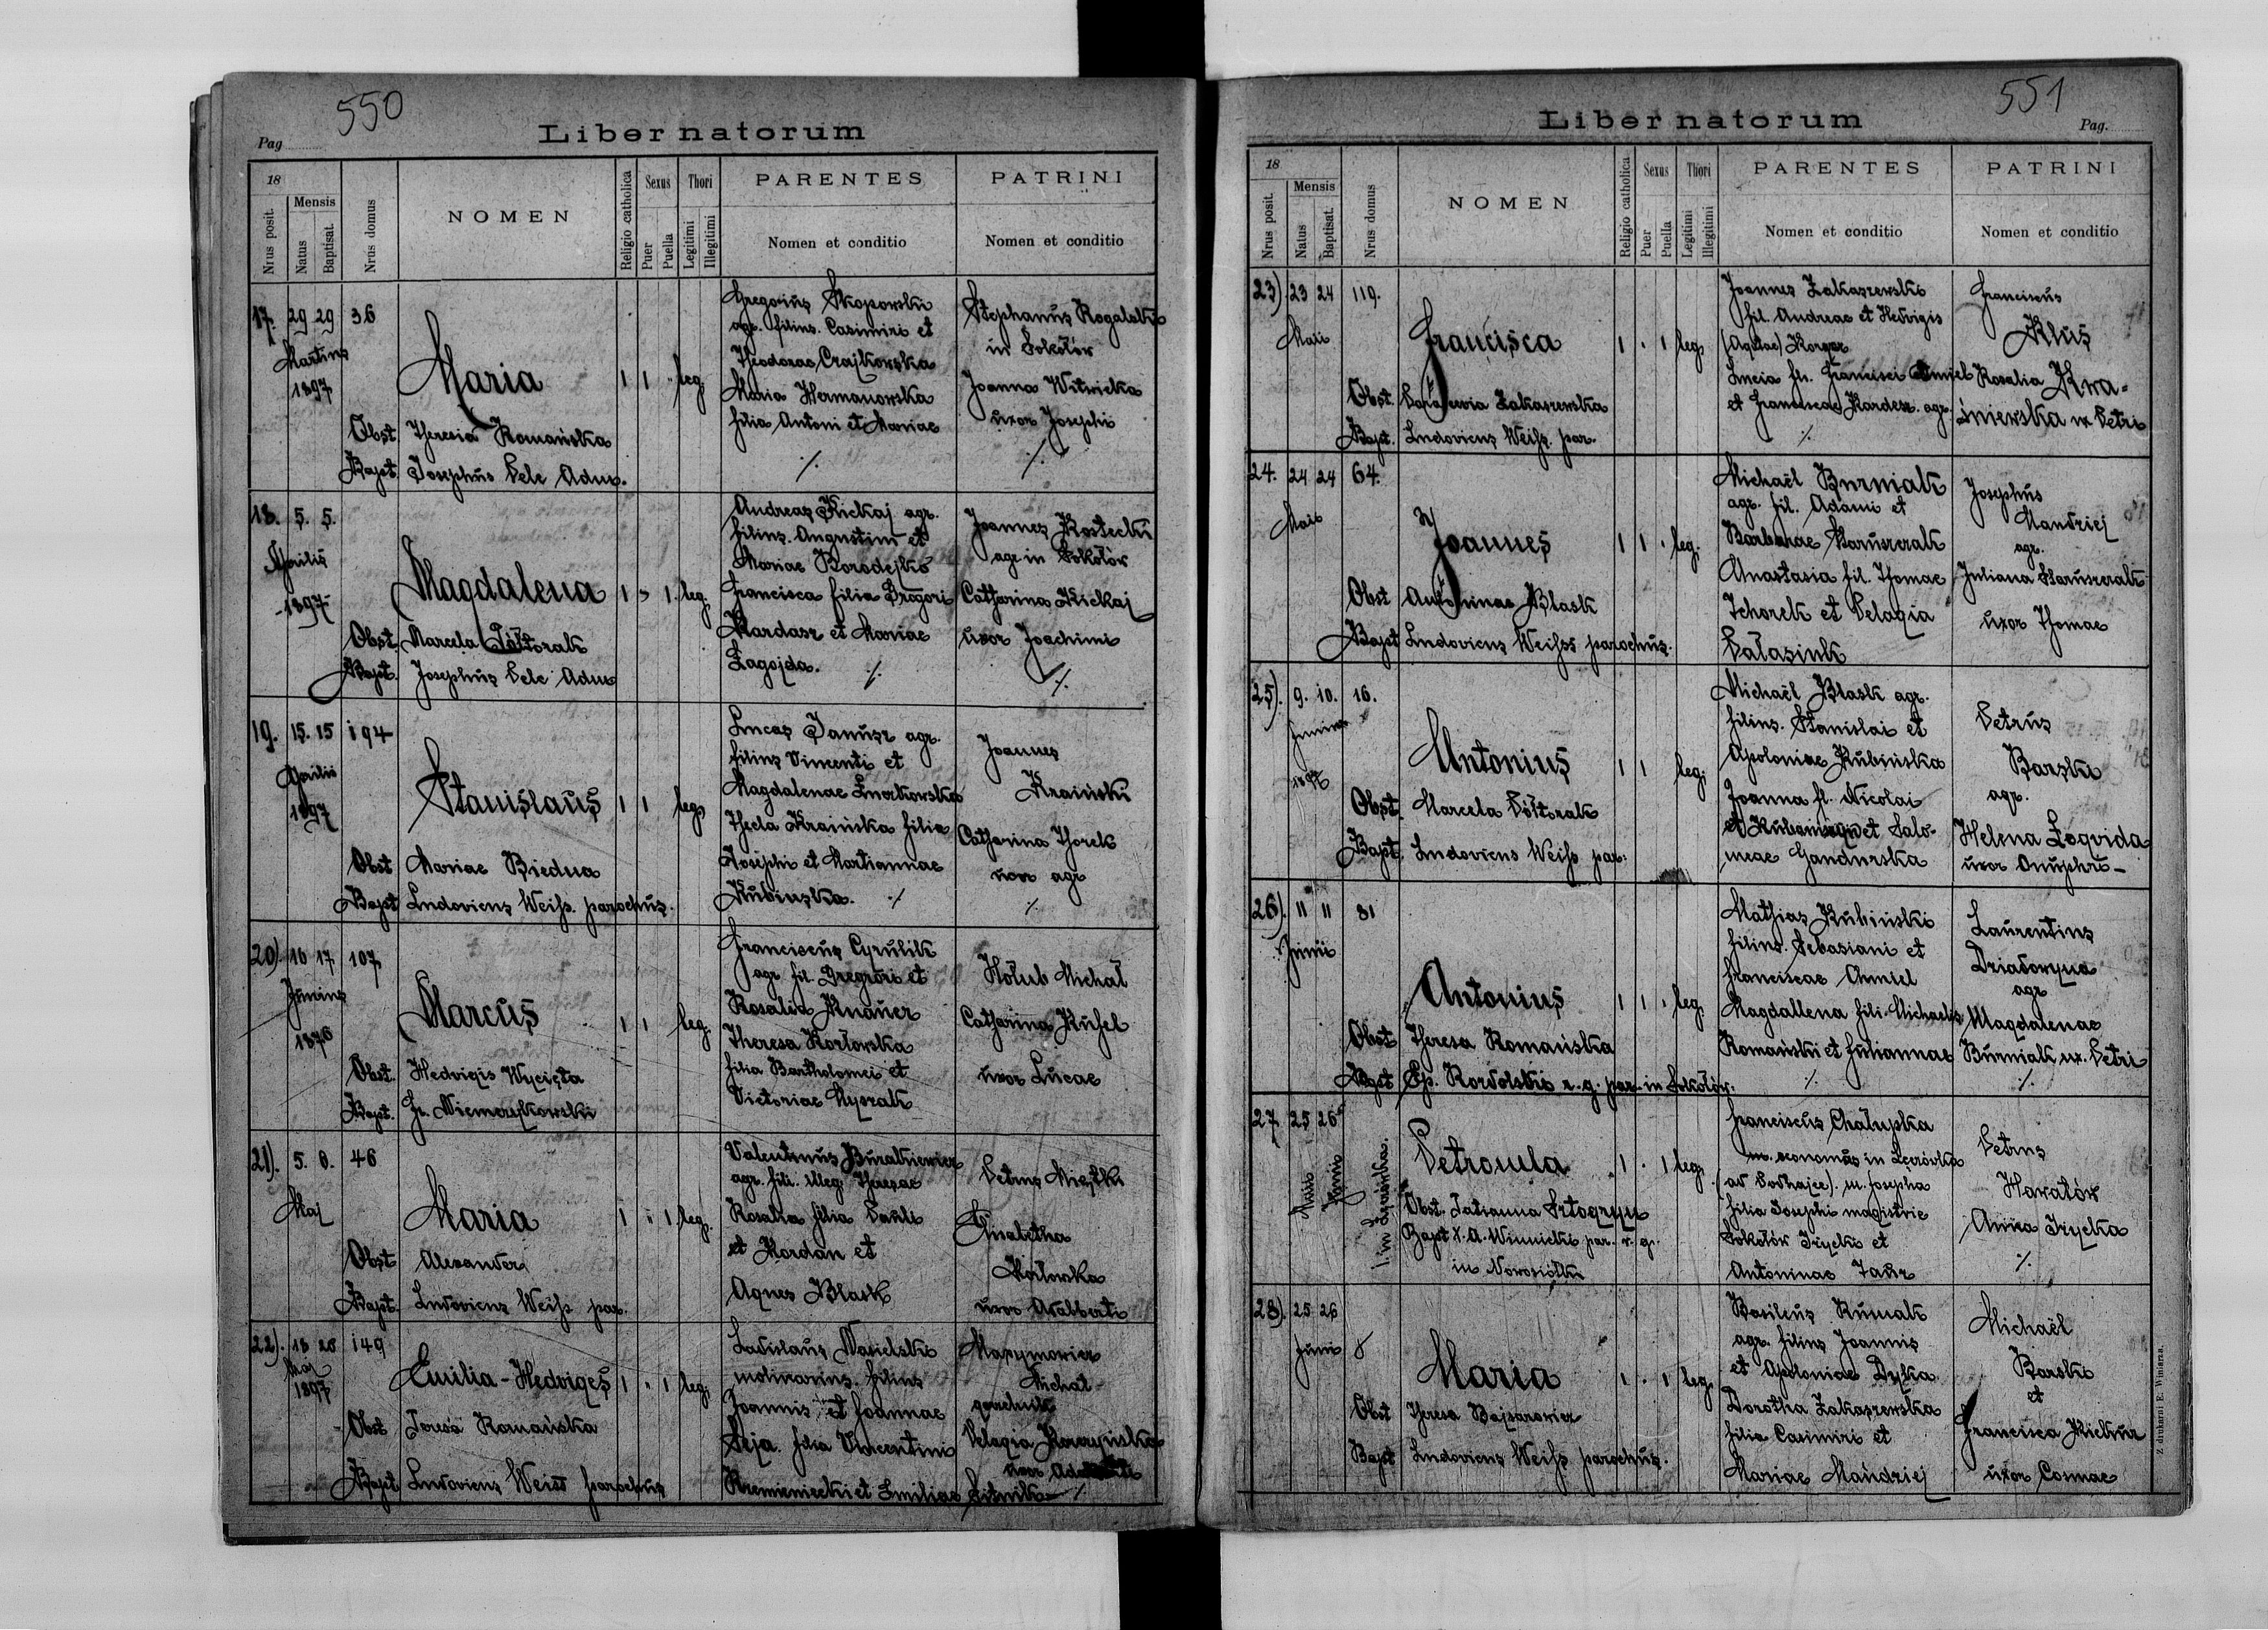 550
Pag
Liber natorum
18
Nrus posit.
Mensis
Natus
Baptisat.
Nrus domus
NOMEN
Religio catholica
Sexus
Puer
Puella
Thori
Legitimi
Illegitimi
PARENTES
Nomen et conditio
PATRINI
Nomen et conditio
17. 29 29 36
Martius
1897
Maria
1 1 leg.
Obst Theresia Romańska
Bapt. Josephus Pele Adm.
Gregorius Skopowski
agr. filius. Casimiri et
Theodorae Czajkowska
Maria Hermanowska
filia Antoni et Mariae
Stephanus Rogalski
in Sokołów
Joanna Witwicka
uxor Josephi
18. 5. 5.
Aprilis
1897
Magdalena
1 1. leg.
Obst. Marcela Półtorak
Bapt. Josephus Pele Adm
Andreas Kickaj agr.
filius. Augustini et
Mariae Borodejko
Francisca filia Gregori
Kardasz et Mariae
Zagojda.
Joannes Kostecki
agr in Sokołów
Catharina Kickaj
uxor Joachimi
19. 15. 15 194
Aprilis
1897
Stanislaus
1 1 leg
Obst Mariae Biedna
Bapt Ludovicus Weiss. parochus.
Lucas Janusz agr.
filius Vincenti et
Magdalenae
Thecla Kraińska filia
Josephi et Martiannae
Kubinska.
Joannes
Kraiński
Catharina Thorek
uxor agr
20). 16 17 107
Junius
1876
Marcus
1 1 leg.
Obst. Hedvigis Wycięta
Bapt. Fr. Niemczykowski
Franciscus Cyrulik
agr. fil. Gregori et
Rosalia Knauer
Theresa Kozłowska
filia Bartholomei et
Victoriae Myszak
Hołub Michał
Catharina Kufel
uxor Lucae
21). 5. 8. 46
Maj
Maria
1 1 leg.
Obst Alexander
Bapt. Ludovicus Weiss par.
Valentinus Burakiewicz
agr. fili. illeg. Theresae
Rosalia filia Pauli
et Mordan et
Agnes Błask
Petrus Miejski
Elisabetha
uxor Adalberti
22). 18 20 149
Maj
1897
Emilia-Hedviges
1 1 leg.
Obst Teresa Romańska
Bapt Ludovicus Weiss parochus
Ladislaus Wasielski
molinarius. filius
Joannis et Joannae
Seja. filia Vincentini
Krzemieniecki et Emiliae Sitnik
Maxymowicz
Michał
Pelagia
uxor
551
Liber natorum
Pag.
18
Nrus posit.
Mensis
Natus
Baptisat.
Nrus domus
NOMEN
Religio catholica
Sexus
Puer
Puella
Thori
Legitimi
Illegitimi
PARENTES
Nomen et conditio
PATRINI
Nomen et conditio
23). 23 24 119.
Maii
Francisca
1 1 leg.
Obst. Zakaszewska
Bapt. Ludovicus Weiss. par.
Joannes Zakaszewski
fil. Andreae et Hedvigis
(Agatae) Korger
Lucia fil. Francisci Chmiel
et Franciscae Kardesz. agr.
Franciscus
Kluś
Rosalia Kwa-
śniewska ux Petri
24. 24 24 64.
Maii
Joannes
1 1 leg.
Obst Antoninae Błask
Bapt Ludovicus Weiss parochus.
Michaël Burniak
agr. fil. Adami et
Barbarae Staruszczak
Anastasia fil. Thomae
Tchorek et Pelagia
Pałasiuk
Josephus
Mandziej
agr.
Juliana Staruszczak
uxor Thomae
25). 9. 10. 16.
Junius
1897
Antonius
1 1 leg.
Obst. Marcela Półtorak
Bapt. Ludovicus Weiss par.
Michaël Błask agr.
filius. Stanislai et
Apoloniae Kubińska
Joanna fl. Nicolai
et et Salo-
meae Gandurska
Petrus
Barski
agr.
Helena Zagvida
uxor Onuphri-
26). 11 11 81
Junii
Antonius
1 1 leg.
Obst Theresa Romańska
Bapt Ep. Kordolski r. g. par in Sokołów.
Mathias Kubiński
filius. Sebasiani et
Franciscae Chmiel
Magdallena fili. Michaelis
Romański et Juliannae
Laurentius
Dziadowyna
agr
Magdalenae
Burniak ux. Petri
27. 25 26
Junii
Petronela
1 1 leg.
Obst. Tatianna
Bapt X. A. Winnicki par. r. g.
in Nowosiółka
Franciscus Chałupka
m. economus in
(ad Podhajce). m. Josepha
filia Josephi magistrie
Sokołów Trycki et
Antoninae Taur
Petrus
Hawatów
Anna Trycka
28). 25 26
Junii 8
Maria
1 1 leg.
Obst Theresa Bajzarowicz
Bapt Ludovicus Weiss parochus.
Basilius Rumak
agr. filius Joannis
et Apoloniae Dyka
Dorothea Zakaszewska
filia Casimiri et
Mariae Mandziej
Michaël
Barski
et
Francisca Kickur
uxor Cosmae
Z drukarni E. Winiarza.